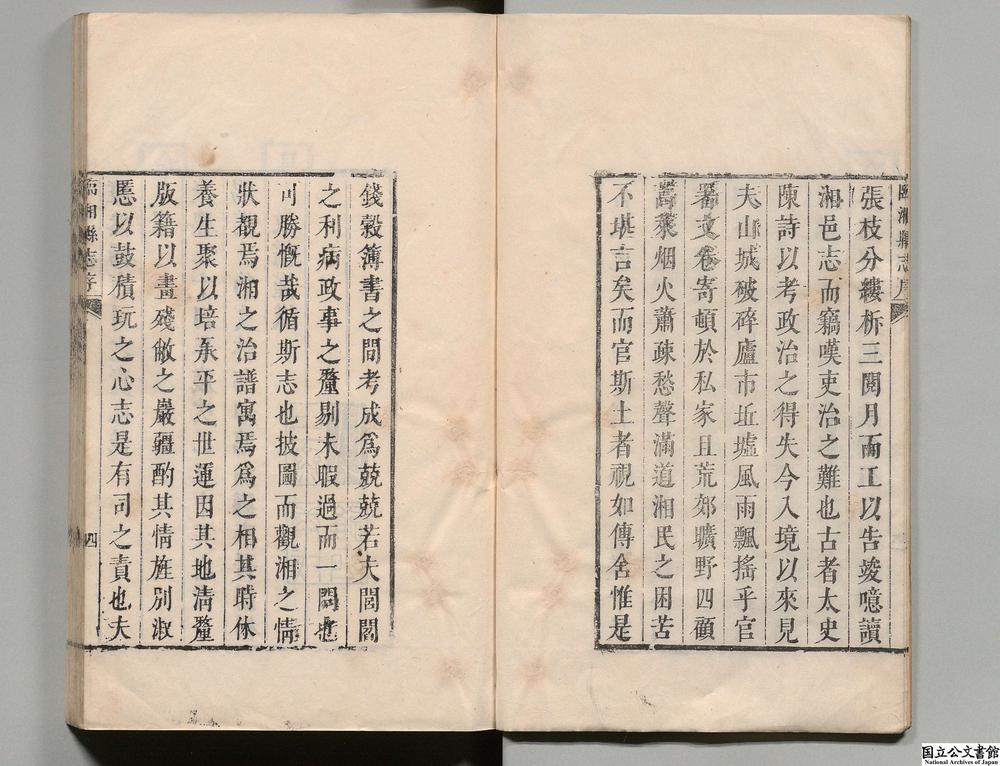 臨湘縣志序
張枝分縷析三閱月而工以告竣噫讀
湘邑志而竊嘆吏治之難也古者太史
陳詩以考政治之得失今入境以來見
夫山城破碎廬市坵墟風雨飄搖乎官
署文卷寄頓於私家且荒郊曠野四顧
蒿萊烟火蕭疎愁聲滿道湘民之困苦
不堪言矣而官斯土者視如傳舍惟是
錢穀簿書之間考成為兢兢若夫閭閻
之利病政事之釐剔未暇過而一問也
可勝慨哉循斯志也披圖而觀湘之情
狀覩焉湘之治譜寓焉為之相其時休
養生聚以培承平之世運因其地清釐
版籍以畫殘敝之巖疆酌其情旌別淑
慝以鼓積玩之心志是有司之責也夫
臨湘縣志序
四
国立公文書館
National Archives of Japan